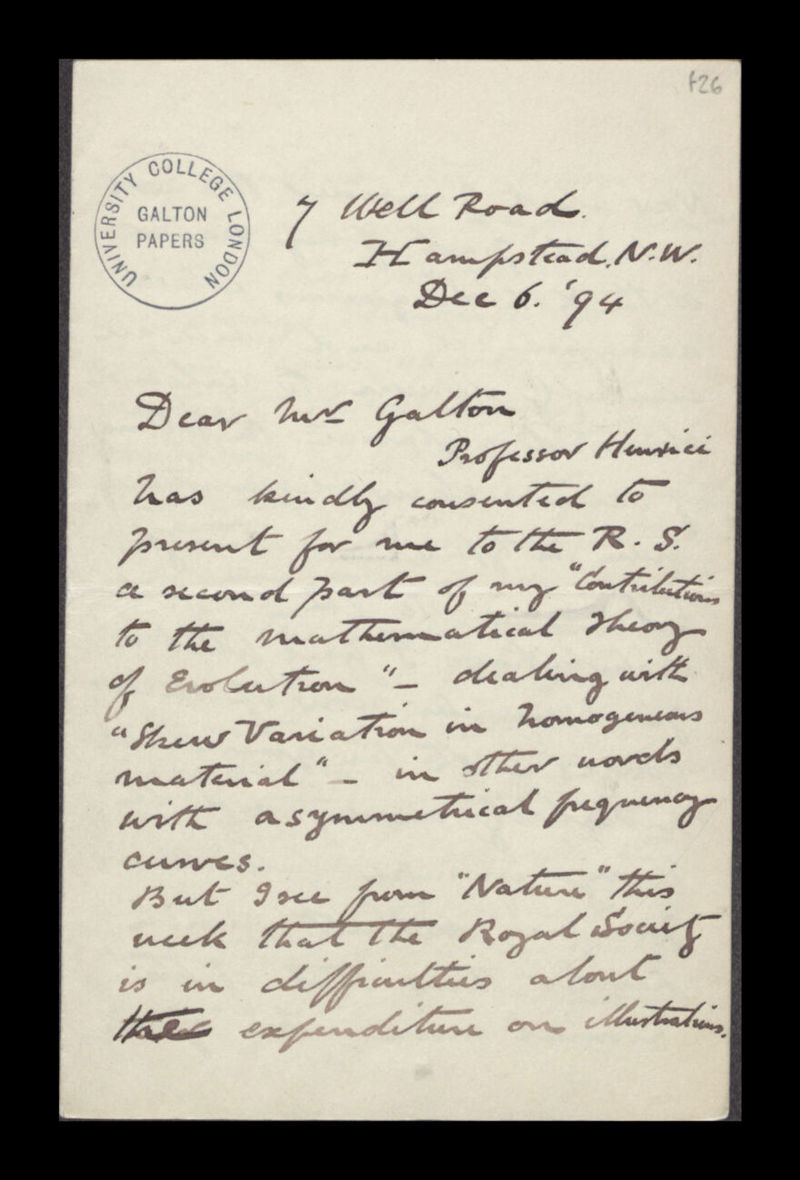 f26
UNIVERSITY COLLEGE LONDON
GALTON
PAPERS
7 Well Road.
Hampstead. N.W.
Dec 6. '94
Dear Mr Galton
Professor Henrici
has kindly consented to
present for me to the R. S.
a second part of my "Contributions
to the mathematical Theory
of Evolution" – dealing with
"Skew Variation in homogeneous
material" – in other words
with asymmetrical frequency
curves.
But I see from "Nature" this
week that the Royal Society
is in difficulties about
expenditure on illustrations.